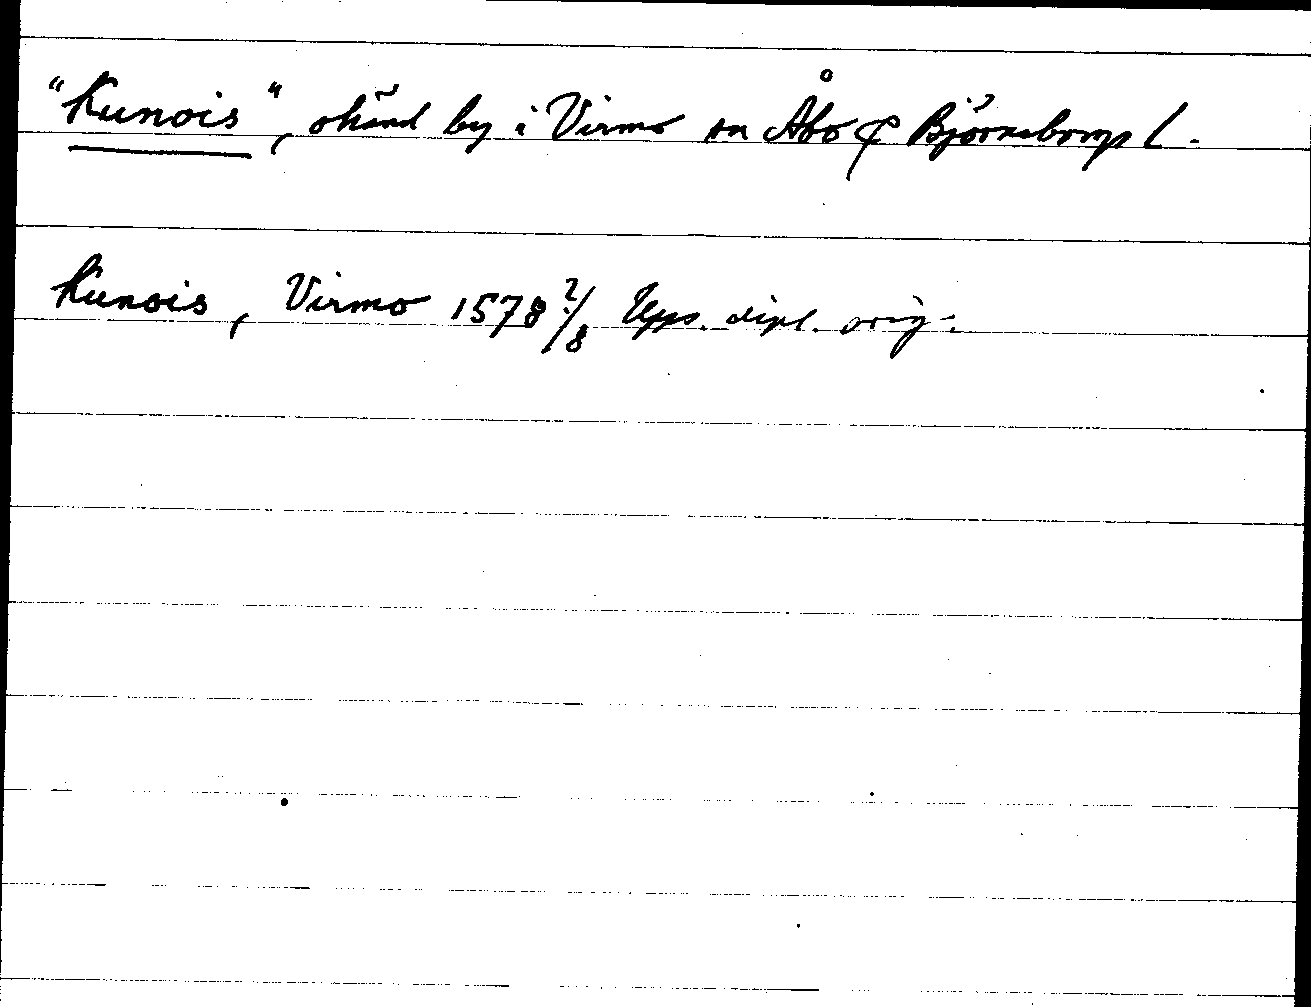 "Kunois", okänd by i Virmo sn Åbo & Björneborgs l.
Kunois, Virmo 1578 2/8 Upps. dipl. orig.